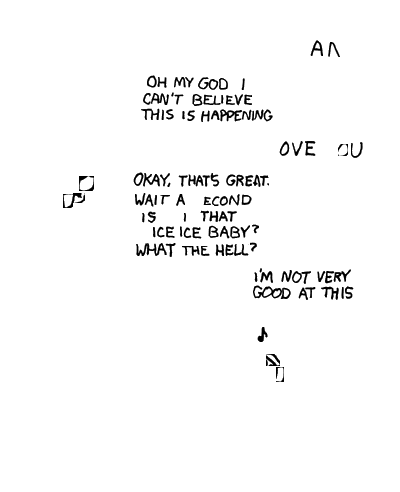 OH MY GOD I
CAN'T BELIEVE
THIS IS HAPPENING
OKAY, THAT'S GREAT.
WAIT A
IS THAT
ICE ICE BABY?
WHAT THE HELL?
I'M NOT VERY
GOOD AT THIS